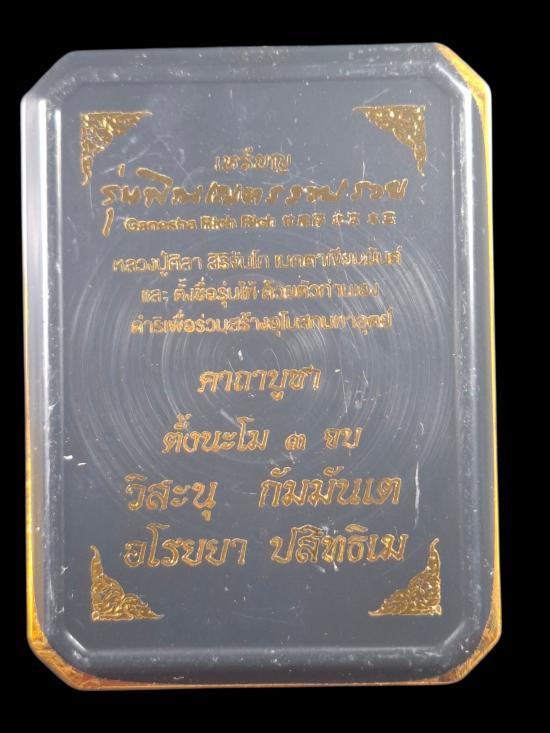 เหรียญ
รุ่นพิฆเนศรวยรวย
Ganesha Rich Rich
หลวงปู่ศิลา สิริจันโท เมตตาเขียนยันต์
และ ตั้งชื่อรุ่นให้ ด้วยตัวท่านเอง
ดำริเพื่อร่วมสร้างอุโบสถมหาอุตย์
คาถาบูชา
ตั้งนะโม ๓ จบ
วิสะนุ กัมมันเต
อโรยยา ปสิทธิเม